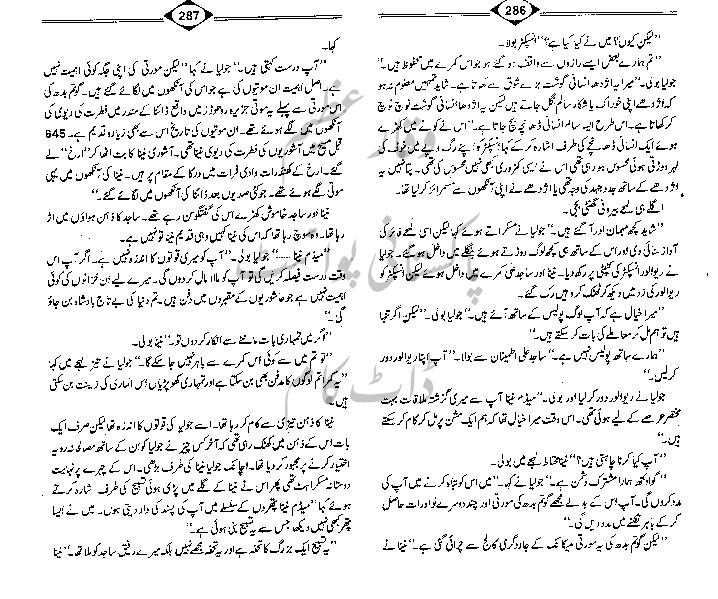 286
"لیکن کیوں؟ میں نے کیا کیا ہے؟" انسپکٹر بولا۔
"تم ہمارے بعض ایسے رازوں سے واقف ہو گئے ہو جو اس کمرے میں محفوظ ہیں۔"
جولیا بولی۔ "میرا یہ اژدھا انسانی گوشت بڑے شوق سے کھاتا ہے۔ شاید تمہیں معلوم نہ ہو
کہ اژدھے اپنی خوراک یا شکار سالم نگل جاتے ہیں لیکن یہ اژدھا انسانی گوشت نوچ نوچ
کر کھاتا ہے۔ اس طرح ایک سالم انسانی ڈھانچہ بچ جاتا ہے۔" اس نے کونے میں کھڑے
ہوئے ایک انسانی ڈھانچے کی طرف اشارہ کر کے کہا۔ انسپکٹر کو اپنے رگ و پے میں خوف کی
لہر دوڑتی ہوئی محسوس ہو رہی تھی اس نے ایسی کمزوری کبھی نہیں محسوس کی تھی۔ پتا نہیں یہ
اژدھے کے ساتھ جدوجہد کی وجہ تھی یا اژدھے نے اپنی آنکھوں سے مسمرائز کر لیا تھا۔
اگلے ہی لمحے بیرونی گھنٹی بجی۔
"شاید کچھ مہمان اور آ گئے ہیں۔" جولیا نے مسکراتے ہوئے کہا لیکن اسی لمحے فائر کی
آواز سنائی دی اور اس کے ساتھ ہی کچھ لوگ دوڑتے ہوئے بنگلے میں داخل ہو گئے۔ جولیا
نے ریوالور انسپکٹر کی کنپٹی پر رکھ دیا۔ نینا اور ساجد علی کمرے میں داخل ہوئے لیکن انسپکٹر کو
ریوالور کی زد میں دیکھ کر ٹھٹک کر وہیں رک گئے۔
"میرا خیال ہے کہ آپ لوگ پولیس کے ساتھ آئے ہیں۔" جولیا بولی۔ "لیکن اگر تنہا
ہیں تو ہم مل کر معاملے کی بات کر سکتے ہیں۔"
"ہمارے ساتھ پولیس نہیں ہے۔" ساجد علی اطمینان سے بولا۔ "آپ اپنا ریوالور دور
کر لیں۔"
جولیا نے ریوالور دور کر لیا اور بولی۔ "میڈم نینا آپ سے میری گزشتہ ملاقات بہت
مختصر عرصے کے لیے ہوئی تھی۔ اس وقت میرا خیال تھا کہ ہم ایک مشن پر مل کر کام کر سکتے
ہیں۔"
"آپ کیا کرنا چاہتی ہیں؟" نینا محتاط لہجے میں بولی۔
"گوادکھ ہمارا مشترک دشمن ہے۔" جولیا نے کہا۔ "میں اس کو تباہ کرنے میں آپ کی
مدد کروں گی۔ آپ اس کے بدلے مجھے گوتم بدھ کی مورتی اور چند دوسرے نوادرات حاصل
کر کے باہر نکلنے میں مدد دیں گی۔"
"لیکن گوتم بدھ کی یہ مورتی میکانک کے جادوگری کالج سے چرائی گئی ہے۔" نینا نے
287
کہا۔
"آپ درست کہتی ہیں۔" جولیا نے کہا "لیکن مورتی کی اپنی جگہ کوئی اہمیت نہیں
ہے۔ اصل اہمیت ان موتیوں کی ہے جو اس کی آنکھوں میں لگائے گئے ہیں۔ گوتم بدھ کی
اس مورتی سے پہلے یہ موتی جزیرہ رھوڈز میں واقع ڈائنا کے مندر میں فطرت کی دیوی کی
آنکھوں میں لگے ہوئے تھے۔ ان موتیوں کی تاریخ اس سے بھی زیادہ قدیم ہے۔ 645
قبل مسیح میں آشوریوں کی فطرت کی دیوی نینا تھی۔ آشوری نینا کا بت اٹھا کر "ارخ" لے
گئے۔ ارخ کے کھنڈرات وادی فرات میں ورکا کے مقام پر ہیں۔ نینا کی آنکھوں میں یہی
موتی لگے ہوئے تھے۔ جو کئی صدیوں بعد ڈائنا کی آنکھوں میں لگائے گئے۔"
نینا اور ساجد خاموش کھڑے اس کی گفتگو سن رہے تھے۔ ساجد کا ذہن ہواؤں میں اڑ
رہا تھا۔ وہ سوچ رہا تھا کہ اس کی نینا کہیں وہی قدیم نینا تو نہیں ہے۔
"میڈم نینا......" جولیا بولی۔ "آپ کو میری قوتوں کا اندازہ نہیں ہے۔ اگر آپ اس
وقت درست فیصلہ کریں گی تو آپ کو مالا مال کر دوں گی۔ میرے لیے ان خزانوں کی کوئی
اہمیت نہیں ہے جو عاشوریوں کے مقبروں میں دفن ہیں۔ تم دنیا کی بے تاج بادشاہ بن جاؤ
گی۔"
"اگر میں تمہاری بات ماننے سے انکار کر دوں تو۔" نینا بولی۔
"تو تم میں سے کوئی اس کمرے سے باہر نہیں جا سکے گا۔" جولیا نے تیز لہجے میں کہا
"یہ کمرا تم لوگوں کا مدفن بھی بن سکتا ہے اور تمہاری کھوپڑیاں اس الماری کی زینت بن سکتی
ہیں۔"
نینا کا ذہن تیزی سے کام کر رہا تھا۔ اسے جولیا کی قوتوں کا اندازہ تھا لیکن صرف ایک
بات اس کے ذہن میں کھٹک رہی تھی کہ آخر کس چیز نے جولیا کو ان کے ساتھ مصالحانہ رویہ
اختیار کرنے پر مجبور کر دیا تھا۔ اچانک جولیا نینا کی طرف بڑھی۔ اس کے چہرے پر نہایت
دوستانہ مسکراہٹ تھی پھر اس نے نینا کے گلے میں پڑی ہوئی تسبیح کی طرف اشارہ کرتے
ہوئے کہا "میڈم نینا پتھروں کے سلسلے میں آپ کی پسند کی داد دیتی ہوں۔ میں نے ایسا
پتھر کبھی نہیں دیکھا جس سے یہ تسبیح بنی ہوئی ہے۔"
"یہ تسبیح ایک بزرگ کا تحفہ ہے اور یہ تحفہ مجھے نہیں بلکہ میرے رفیق ساجد کو ملا تھا۔" نینا